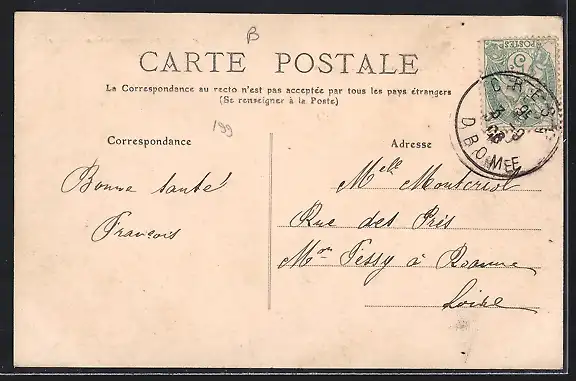 B
CARTE POSTALE
La Correspondance au recto n'est pas acceptée par tous les pays étrangers
(Se renseigner à la Poste)
199
Correspondance
Adresse
Bonne santé
François
Melle Montcriol
Rue des Prés
Mon Tessy à Roanne
Loire
POSTES
CREST
DROME